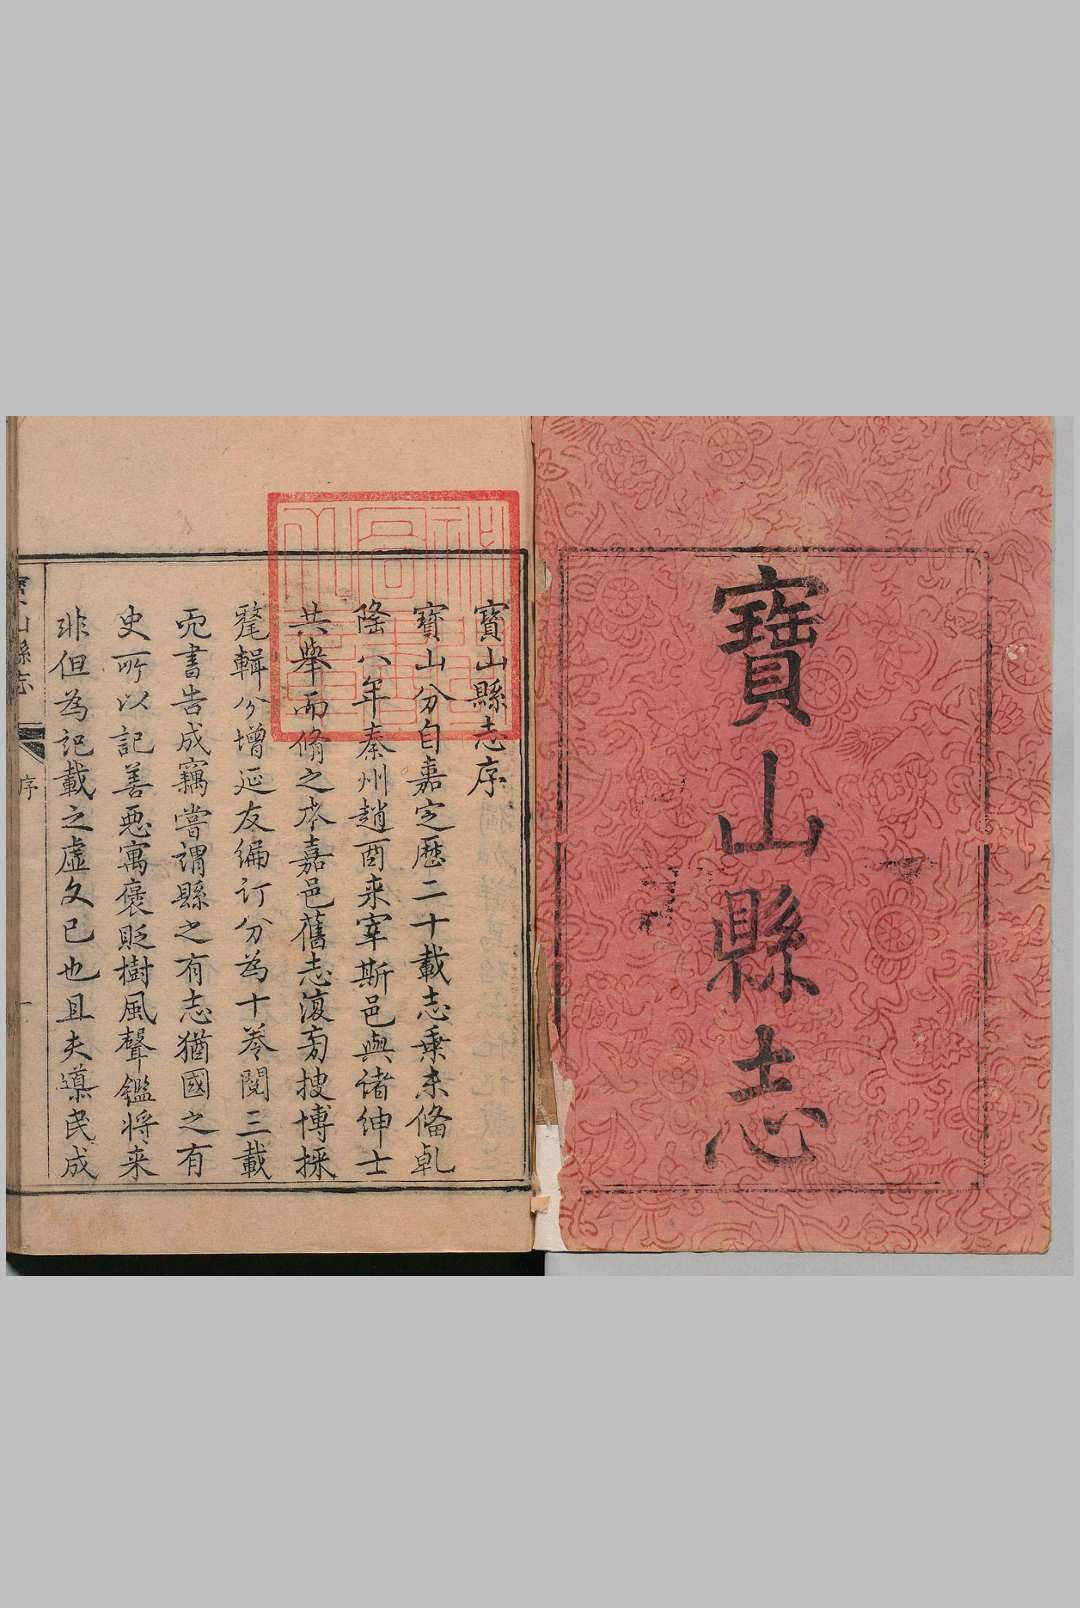 寶山縣志
寶山縣志序
寶山分自嘉定歷二十載志乗未備乹
隆八年秦州趙酉来宰斯邑與诸绅士
共舉而脩之本嘉邑舊志復旁搜博採
釐輯分增延友编订分為十卷閱三載
而書告成竊嘗謂縣之有志猶國之有
史所以記善惡寓褒貶樹風聲鑑将来
非但為記載之虚文已也且夫導民成
寶山縣志
序
一